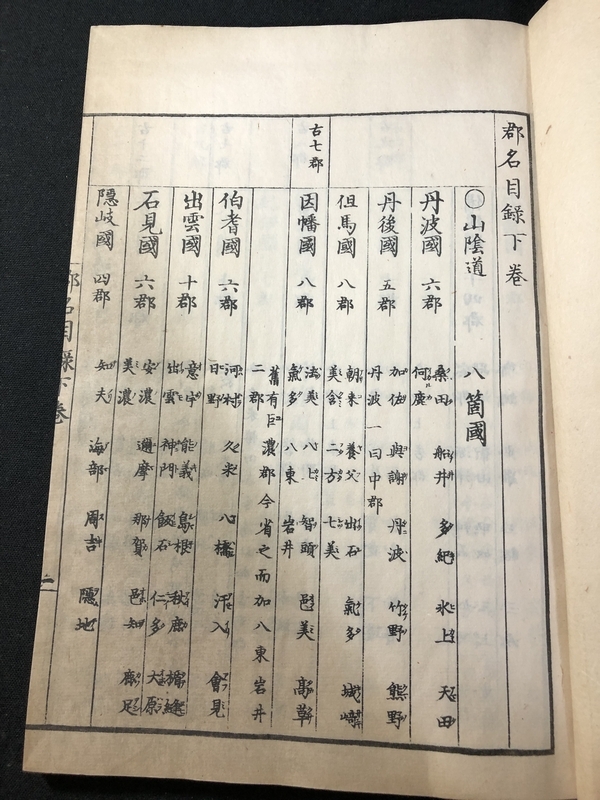 郡名目録下卷
〇山陰道 八箇國
丹波國 六郡 桑田 船井 多紀 氷上 天田
何鹿
丹後國 五郡 加佐 與謝 丹波 竹野 熊野
丹波 一曰中郡
但馬國 八郡 朝來 養父 出石 氣多 城崎
美含 二方 七美
古七郡
因幡國 八郡 法美 八上 智頭 邑美 高草
氣多 八東 岩井
舊有巨濃郡今省之而加八東岩井
二郡
伯耆國 六郡 河村 久米 八橋 汗入 會見
日野
出雲國 十郡 意宇 能義 島根 秋鹿 楯縫
出雲 神門 飯石 仁多 大原
石見國 六郡 安濃 邇摩 那賀 邑知 鹿足
美濃
隱岐國 四郡 知夫 海部 周吉 隱地
郡名目録下卷
二